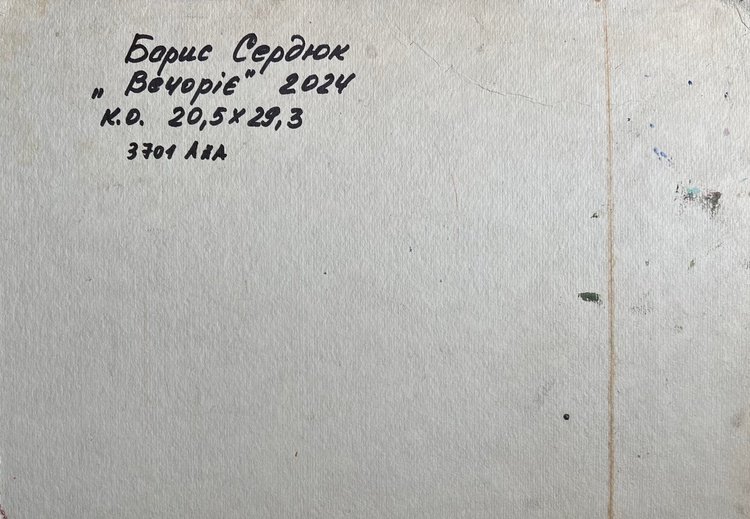 Борис Сердюк
„Вечоріє" 2024
к.о. 20,5х29,3
3701 АпА